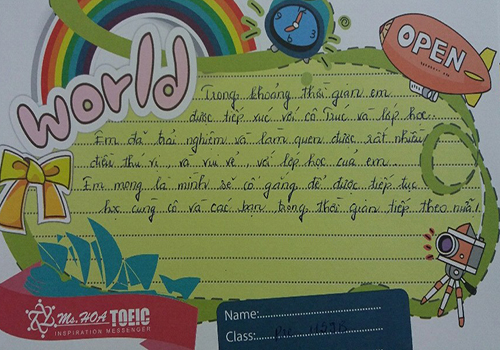 world
OPEN
Trong khoảng thời gian em
được tiếp xúc với cô Trúc và lớp học.
Em đã trải nghiệm và làm quen được rất nhiều
điều thú vị và vui vẻ, với lớp học của em.
Em mong là mình sẽ cố gắng để được tiếp tục
học cùng cô và các bạn trong thời gian tiếp theo nữa!
Ms. HOA TOEIC
INSPIRATION MESSENGER
Name:
Class: Pre